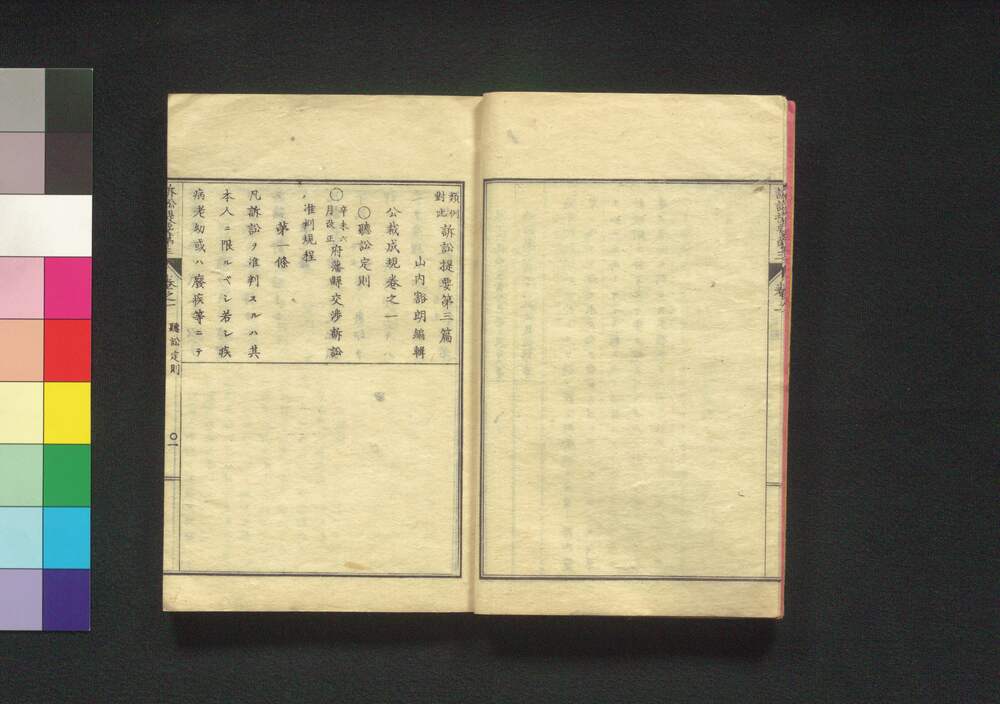 類例
對比
訴訟提要第三篇
山内豁朗編輯
公裁成規卷之一
〇聽訟定則
〇辛未六月改正府藩縣交渉訴訟
准判規程
第一條
凡訴訟ヲ准判スルハ其
本人ニ限ルベシ若シ疾
病老幼或ハ癈疾等ニテ
訴訟提要第三
卷之一
聽訟定則
〇一
卷之一